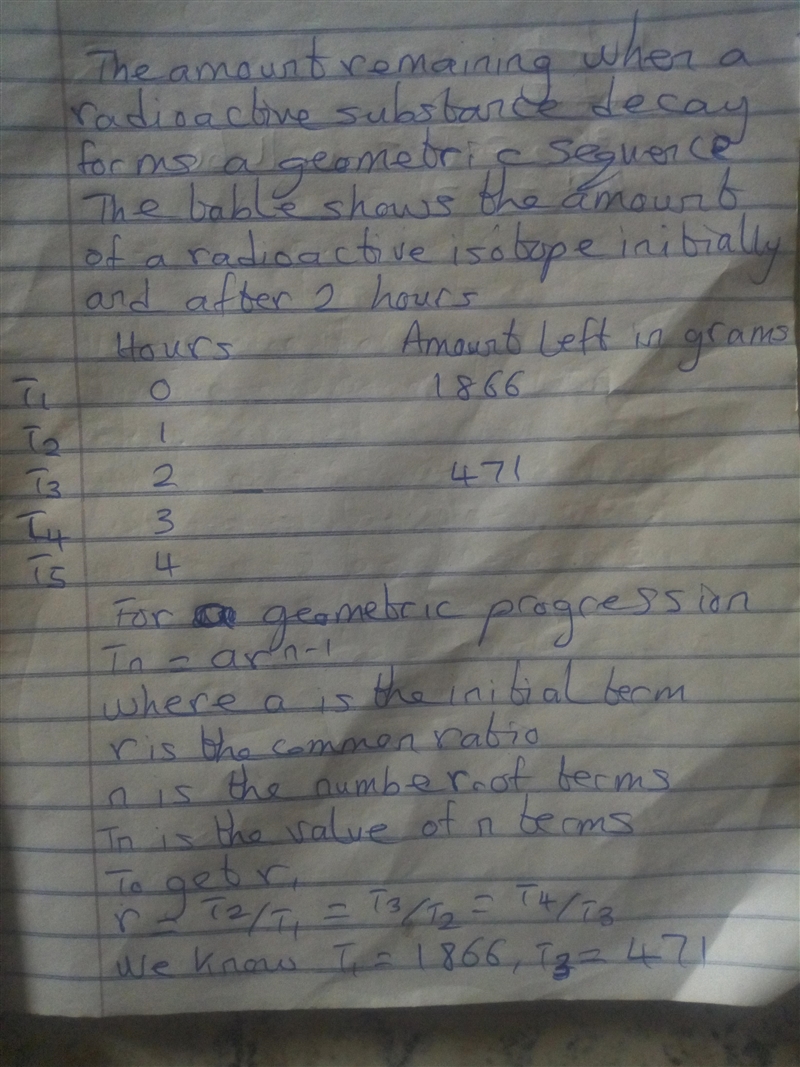 The amount remaining when a
radioactive substance decay
forms a geometric sequence
The table shows the amount
of a radioactive isotope initially
and after 2 hours
Hours Amount Left in grams
T1 0 1866
T2 1
T3 2 471
T4 3
T5 4
For geometric progression
Tn = ar^n-1
where a is the initial term
r is the common ratio
n is the number of terms
Tn is the value of n terms
To get r,
r = T2/T1 = T3/T2 = T4/T3
We know T1 = 1866, T3 = 471